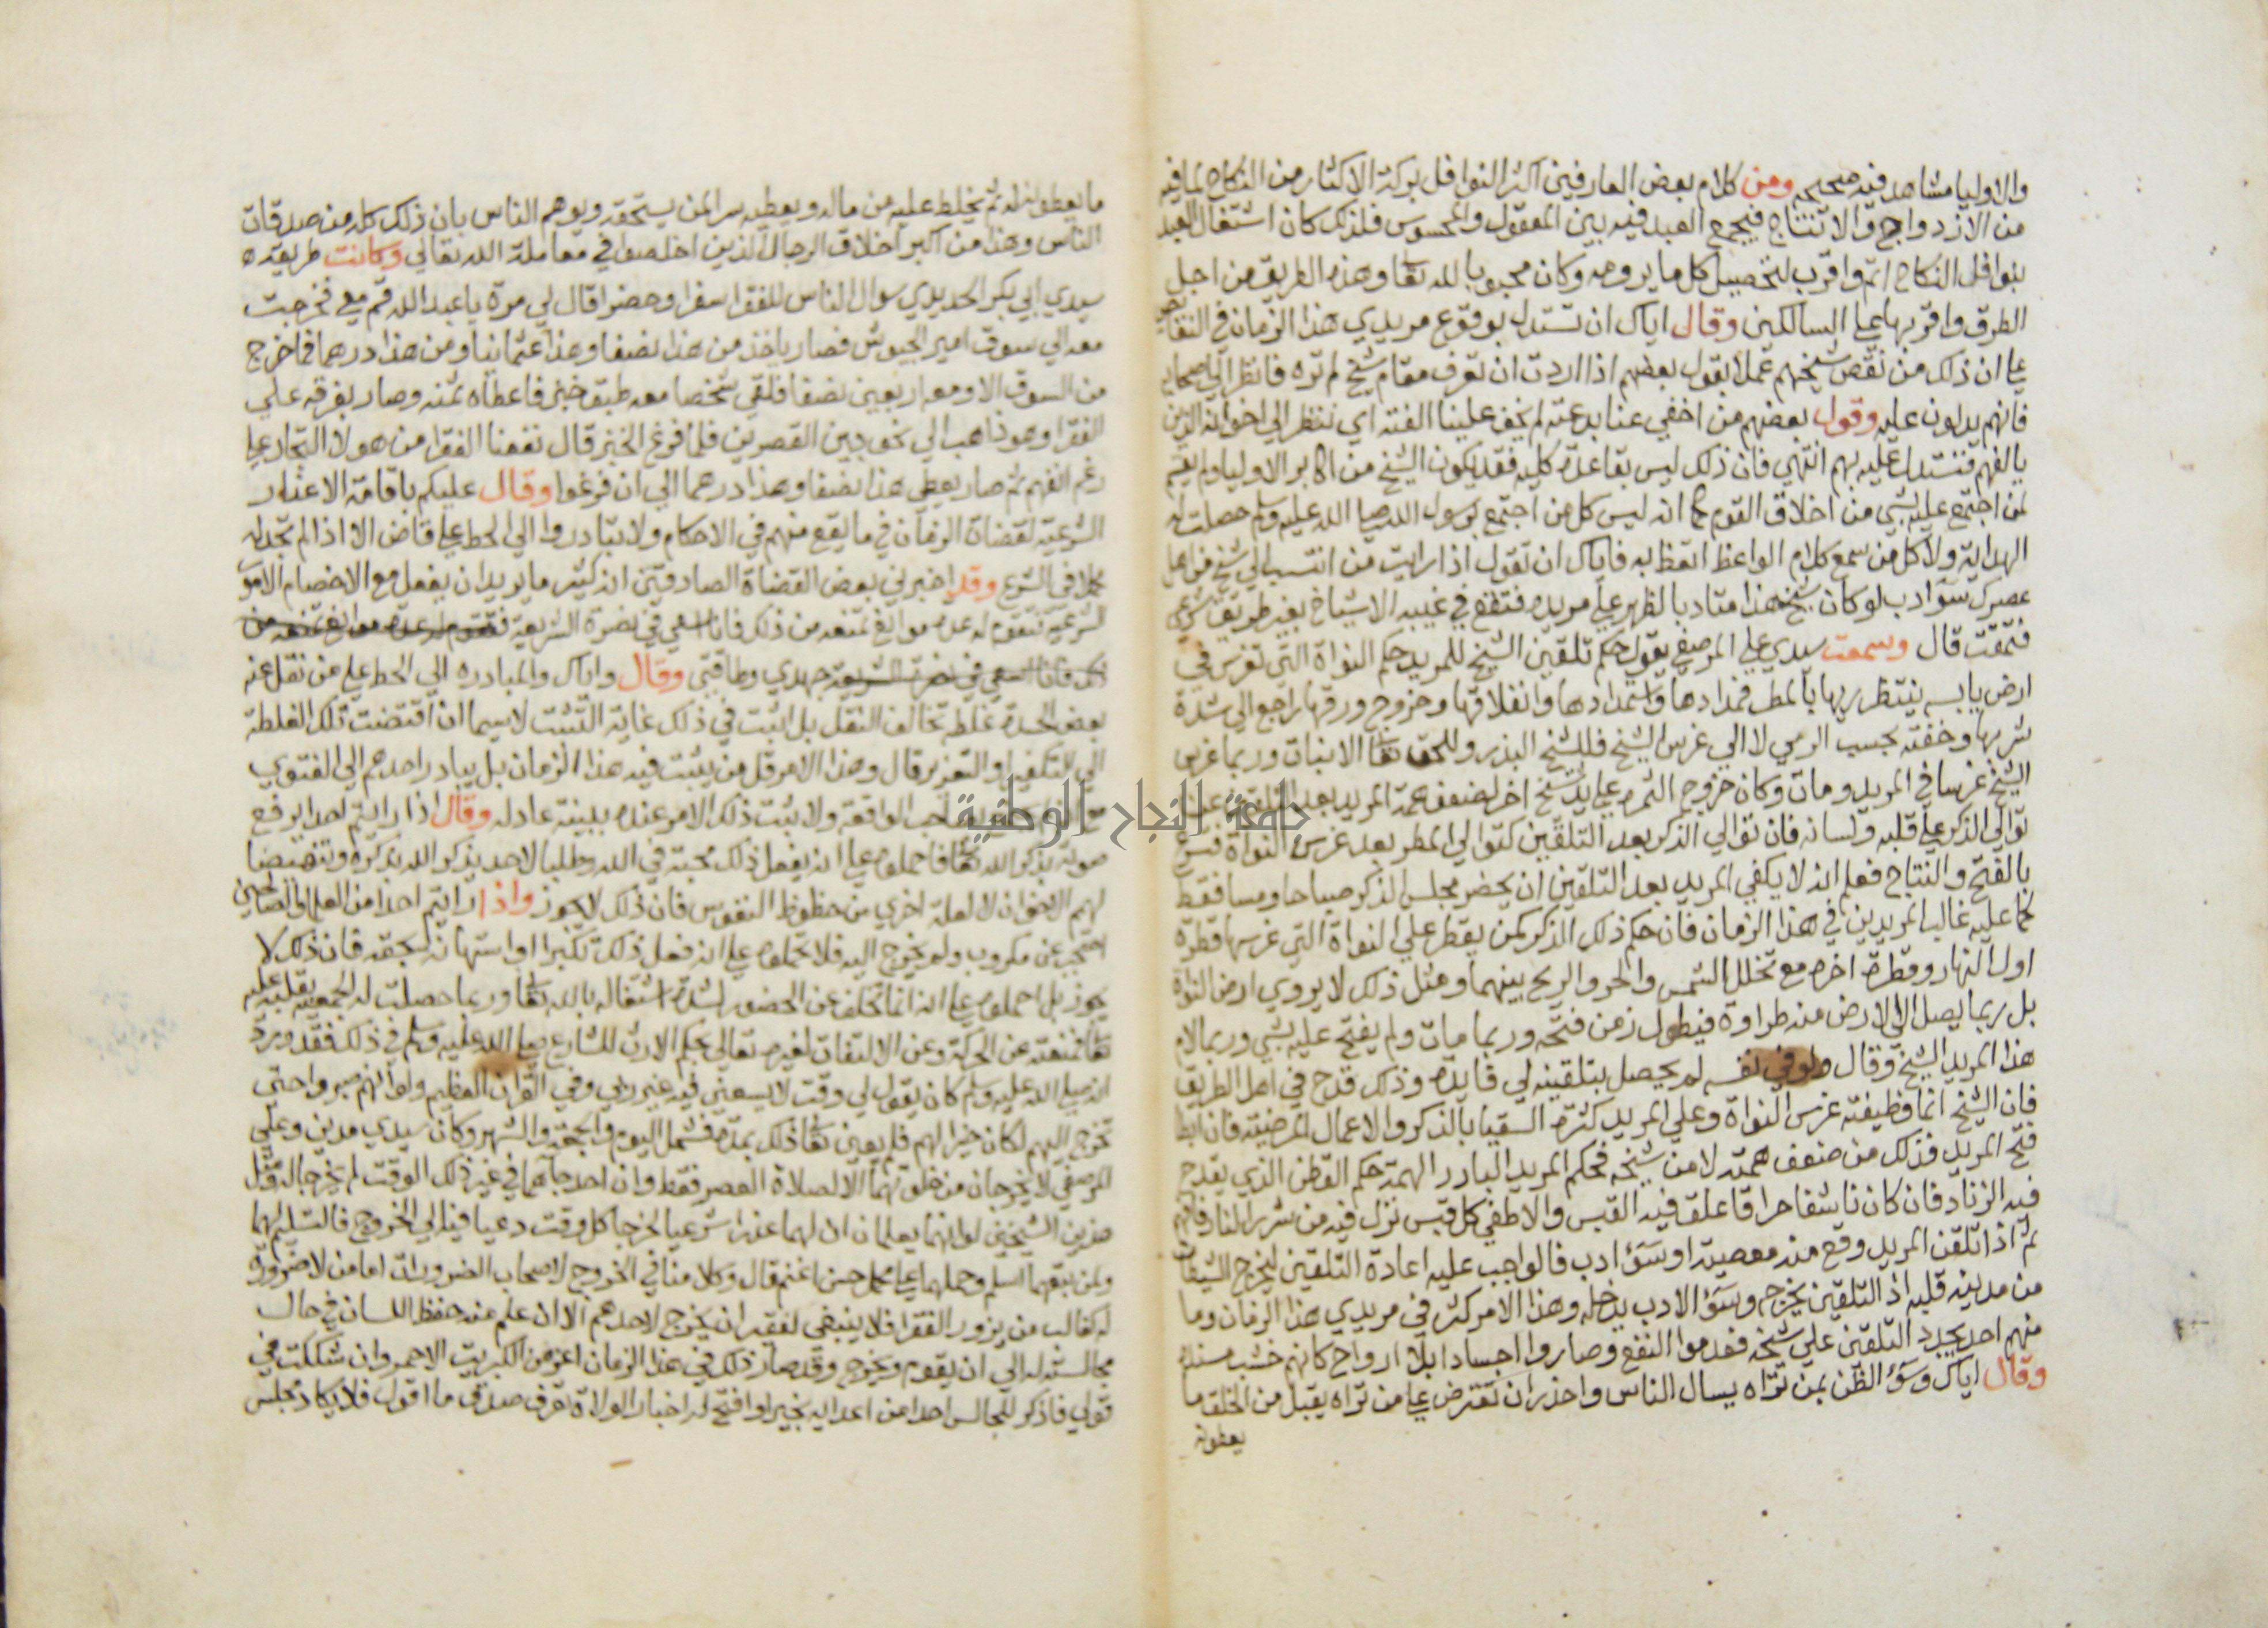 والاوليا مشاهد فيه صحيح ومن كلام بعض العارفين اكثر النوافل بركة الاكثار من النكاح لما فيه
من الازدواج والانتاج فيجمع العبد فيه بين المعقول والمحسوس فلذلك كان اشتغال العبد
بنوافل النكاح اتم واقرب لتحصيل كل ما يرومه وكان محبوبا لله تعا وهذه الطريق من اجل
الطرق واقربها على السالكين وقال اياك ان تستدل بوقوع مريدي هذا الزمان في النقايص
على ان ذلك من نقص شيخهم عملا بقول بعضهم اذا اردت ان تعرف مقام شيخ لم تره فانظر الى اصحابه
فانهم يدلون عليه وقول بعضهم من اخفي عنا بدعته لم يخف علينا الفته اي ننظر الي اخوانه الذين
يالفهم فنستدل عليه بهم انتهي فان ذلك ليس بقاعدة كليه فقد يكون الشيخ من اكابر الاوليا ولم يقسم
لمن اجتمع عليه بشي من اخلاق القوم كما انه ليس كل من اجتمع برسول الله صلى الله عليه وسلم حصلت له
الهداية ولا كل من سمع كلام الواعظ اتعظ به فاياك ان تقول اذا رايت من انتسب الي شيخ من اهل
عصرك سوا ادب لو كان شيخ هذا متادبا لظهر على مريده فتقع في غيبه الاشياخ بغير طريق شرعي
فتمقت قال وسمعت سيدي علي المرصفي يقول حكم تلقين الشيخ للمريد حكم النواة التي تغرس في
ارض يابسه ينتظر ريها بالمطر فمدادها واستمدادها وانفلاقها وخروج ورقها راجع الي شدة
شربها وخفته بحسب الرمي لا الي غرس الشيخ فللشيخ البذر وللحق تعا الانبات وربما غرس
الشيخ غرسا في المريد ومات وكان خروج الثمره على يد شيخ اخر لضعف همة المريد بعد التلقين عن
توالي الذكر على قلبه ولسانه فان توالي الذكر بعد التلقين كتوالي المطر بعد غرس النواة فيسرع
بالفتح والنتاج فعلم انه لا يكفي المريد بعد التلقين ان يحضر مجلس الذكر صباحا ومسا فقط
كما عليه غالب المريدين في هذا الزمان فان حكم ذلك الذكر كمن يقطر علي النواة التي غرسها قطرة
اول النهار وقطرة اخره مع تخلل الشمس والحر والريح بينهما ومثل ذلك لا يروي ارض النواة
بل ربما يصل الي الارض منه طراوة فيطول زمن فتحه وربما مات ولم يفتح عليه بشي وربما لام
هذا المريد الشيخ وقال ولو في نفسه لم يحصل بتلقينه لي فايده وذلك قدح في اهل الطريق
فان الشيخ انما وظيفته غرس النواة وعلي المريد كثرة السقيا بالذكر والاعمال المرضيته فان ابطا
فتح المريد فذلك من ضعف همته لا من شيخه فحكم المريد البادر الهمة حكم القطن الذي يقدح
فيه الزناد فان كان ناشفا حراقا علق فيه القبس والا طفي كل قبس نزل فيه من شرر النار فافهم
ثم اذا تلقن المريد وقع منه معصية او سؤ ادب فالواجب عليه اعادة التلقين ليخرج الشيطان
من مدينه قلبه اذ التلقين يخرجه وسؤ الادب يدخله وهذا الامر كثر في مريدي هذا الزمان وما
منهم احد يجدد التلقين علي شيخه فعدموا النفع وصاروا اجسادا بلا ارواح كانهم خشب مسنده
وقال اياك وسؤ الظن بمن تراه يسال الناس واحذر ان تعترض على من تراه يقبل من الخلق ما
يعطونه
ما يعطونه له ثم يخلط عليه من ماله ويعطيه سرا لمن يستحقه ويوهم الناس بان ذلك كله من صدقات
الناس وهذا من اكبر اخلاق الرجال الذين اخلصوا في معاملة الله تعالي وكانت طريقة
سيدي ابي بكر الحديدي سوال الناس للفقرا سفرا وحضرا قال لي مرة يا عبد الله قم معي فخرجت
معه الي سوق امير الجيوش فصار ياخذ من هذا نصفا وهذا عثمانيا ومن هذا درهما فما خرج
من السوق الا ومعه اربعين نصفا فلقي شخصا معه طبق خبز فاعطاه ثمنه وصار يفرقه علي
الفقرا وهو ذاهب الي نحو بين القصرين فلما فرغ الخبز قال نفعنا الفقرا من هولا التجار على
رغم انفهم ثم صار يعطي هذا نصفا وهذا درهما الي ان فرغوا وقال عليكم باقامة الاعذار
الشرعية لقضاة الزمان في ما يقع منهم في الاحكام ولا تبادروا الي الحط على قاض الا اذا لم تجد له
محملا في الشرع وقد اخبرني بعض القضاة الصادقين انه كثير ما يريد ان يفعل مع الاخصام الامور
الشرعية فتقوم له عدة موانع تمنعه من ذلك فانا اسعي في نصرة الشريعة فتقوم له عدة موانع تمنعه من
ذلك فانا اسعي في نصرة الشريعة جهدي وطاقتي وقال واياك والمبادره الي الحط على من نقل عنه
بعض الحسدة غلطه تخالف النقل بل اثبت في ذلك غاية التثبت لاسيما ان اقتضت تلك الغلطة
الي التكفير او التعزير قال وهذا الامر قل من يثبت فيه هذا الزمان بل يبادر احدهم الي الفتوي
صاحب الواقعة ولا ثبت ذلك الامر عنده ببينة عادله وقال اذا رايتم احدا يرفع
صوته بذكر الله تعا فاحملوه على انه يفعل ذلك محبة في الله وطلبا لاحد يذكر الله بذكره وتنهيضا
لهم الاخوان لا لعلة اخري من حظوظ النفوس فان ذلك لا يجوز واذا رايتم احدا من العلما والصالحين
احتجب عن مكروب ولم يخرج اليه فلا تحملوه على انه فعل ذلك تكبرا او استهانة بحقه فان ذلك لا
يجوز بل احملوه على انه انما تخلف عن الحضور لشدة اشتغاله بالله تعا وربما حصلت له الجمعيه بقلبه عليه
تعا فمنعته عن الحركة وعن الالتفات لغيره تعالي بحكم الارث للشارع صلى الله عليه وسلم في ذلك فقد ورد
انه صلى الله عليه وسلم كان يقول لي وقت لا يسعني فيه غير ربي وفي القران العظيم ولو انهم صبروا حتي
تخرج اليهم لكان خيرا لهم فلم يعين تعا ذلك بمدة فشمل اليوم والجمعة والشهر وكان سيدي مدين وعلي
المرصفي لا يخرجان من خلوتهما الا لصلاة العصر فقط وان احد جاهما في غير ذلك الوقت لم يخرجا له وقل
هذين الشيخين لو انهما يعلمان ان لهما عذرا شرعيا لخرجا كل وقت دعيا فيه الي الخروج فالتسليم لهما
ولمن تبعهما اسلم وحملهما على محمل حسن اغنم قال وكلامنا في الخروج لاصحاب الضرورات اما من لا ضرورة
له كغالب من يزور الفقرا فلا ينبغي لفقير ان يخرج لاحدهم الا ان علم منه حفظ اللسان في حال
مجالسته له الي ان يقوم ويخرج وقد صار ذلك في هذا الزمان اعز من الكبريت الاحمر وان شككت في
قولي فاذكر للمجالس احدا من اعدايه بخير او افتح له اخبار الولاة تعرف صدق ما اقول فلا يكاد مجلس
جامعة النجاح الوطنية